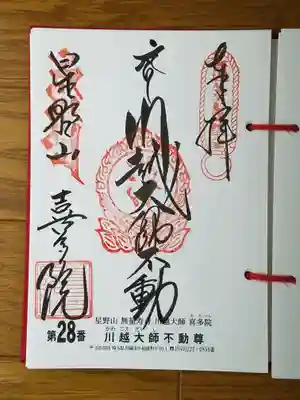 奉拝
川越大師不動
星野山
喜多院
星野山 無量寿寺 川越大師 喜多院
第28番
川越大師不動尊